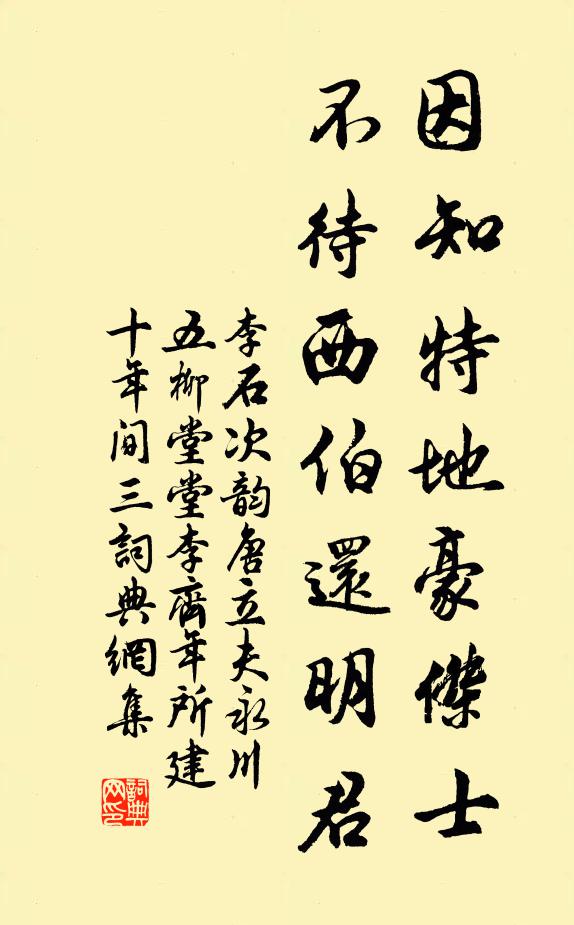 因知特地豪傑士
不待西伯還明君
李石次韵唐立夫永川
五柳堂堂李齊年所建
十年间三詞典網集
詞典
网印